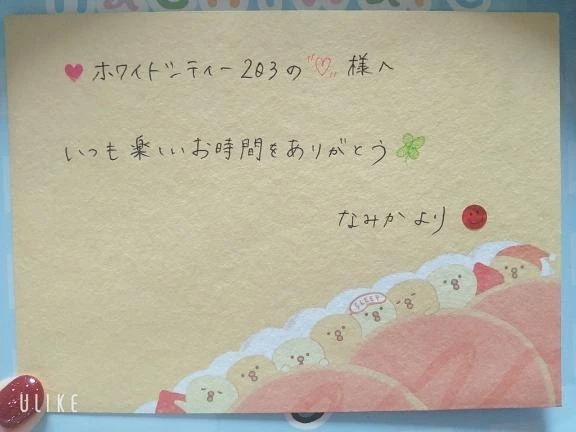 ホワイトシティー203の"♡"様へ
いつも楽しいお時間をありがとう
なみかより
SLEEP
ULIKE